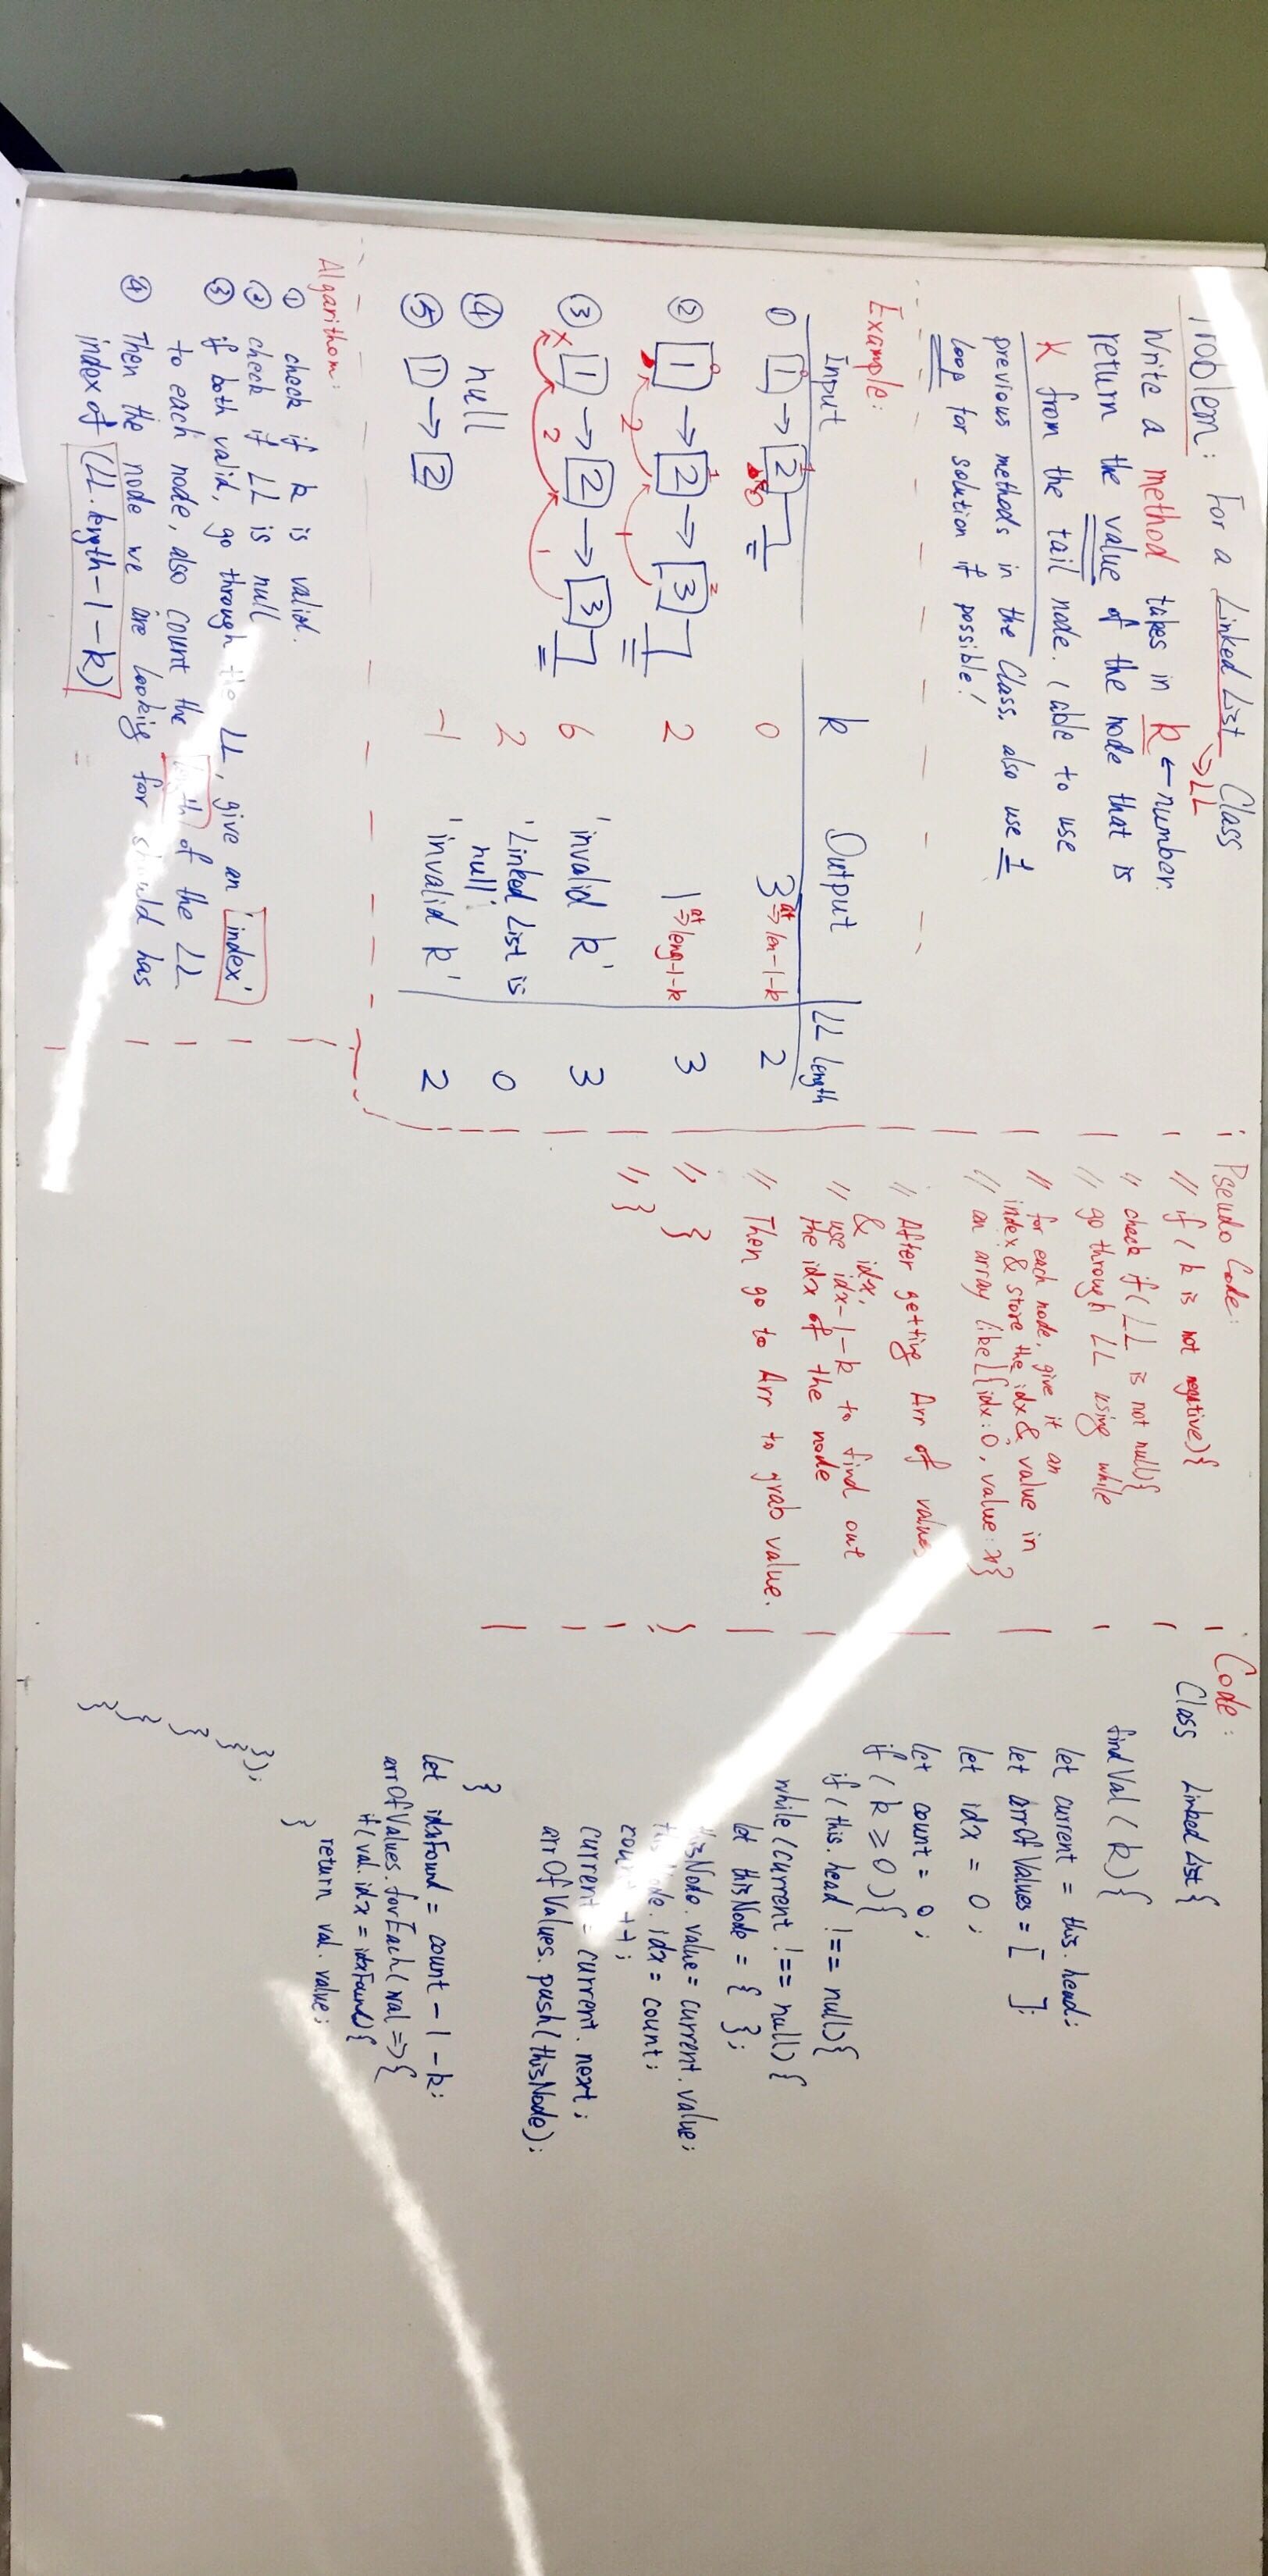 Problem: For a Linked List Class
→ LL
Write a method takes in k ← number.
return the value of the node that is
K from the tail node. (able to use
previous methods in the Class. also use 1
loop for solution if possible!
Example:
Input k Output LL Length
① 1 → 2 0 3 at ⇒ len-1-k 2
0 1
0
② 1 → 2 → 3 2 1 at ⇒ leng-1-k 3
0 1 2
2 1
③ 1 → 2 → 3 6 'invalid k' 3
x 2 1
④ null 2 'Linked List is null' 0
⑤ 1 → 2 -1 'invalid k' 2
Algarithom:
① check if k is valid.
② check if LL is null
③ if both valid, go through the LL, give an 'index'
to each node, also count the length of the LL.
④ Then the node we are looking for should has
index of (LL.length-1-k)
Pseudo Code:
// if (k is not negative){
// check if( LL is not null){
// go through LL using while
// for each node, give it an
index & store the idx & value in
// an array like[{idx:0, value:x}
// After getting Arr of values
& idx.
// use idx-1-k to find out
the idx of the node
// Then go to Arr to grab value.
// }
// }
Code:
Class Linked List {
find Val (k) {
let current = this.head;
let arrOfValues = [ ];
let idx = 0;
let count = 0;
if (k ≥ 0){
if (this.head !== null){
while (current !== null) {
let thisNode = { };
thisNode.value = current.value;
thisNode.idx = count;
count ++;
current = current.next;
arrOfValues.push(thisNode);
}
let idxFound = count - 1 - k;
arrOfValues.forEach( val => {
if( val.idx = idxFound){
return val.value;
}
});
}
}
}
}